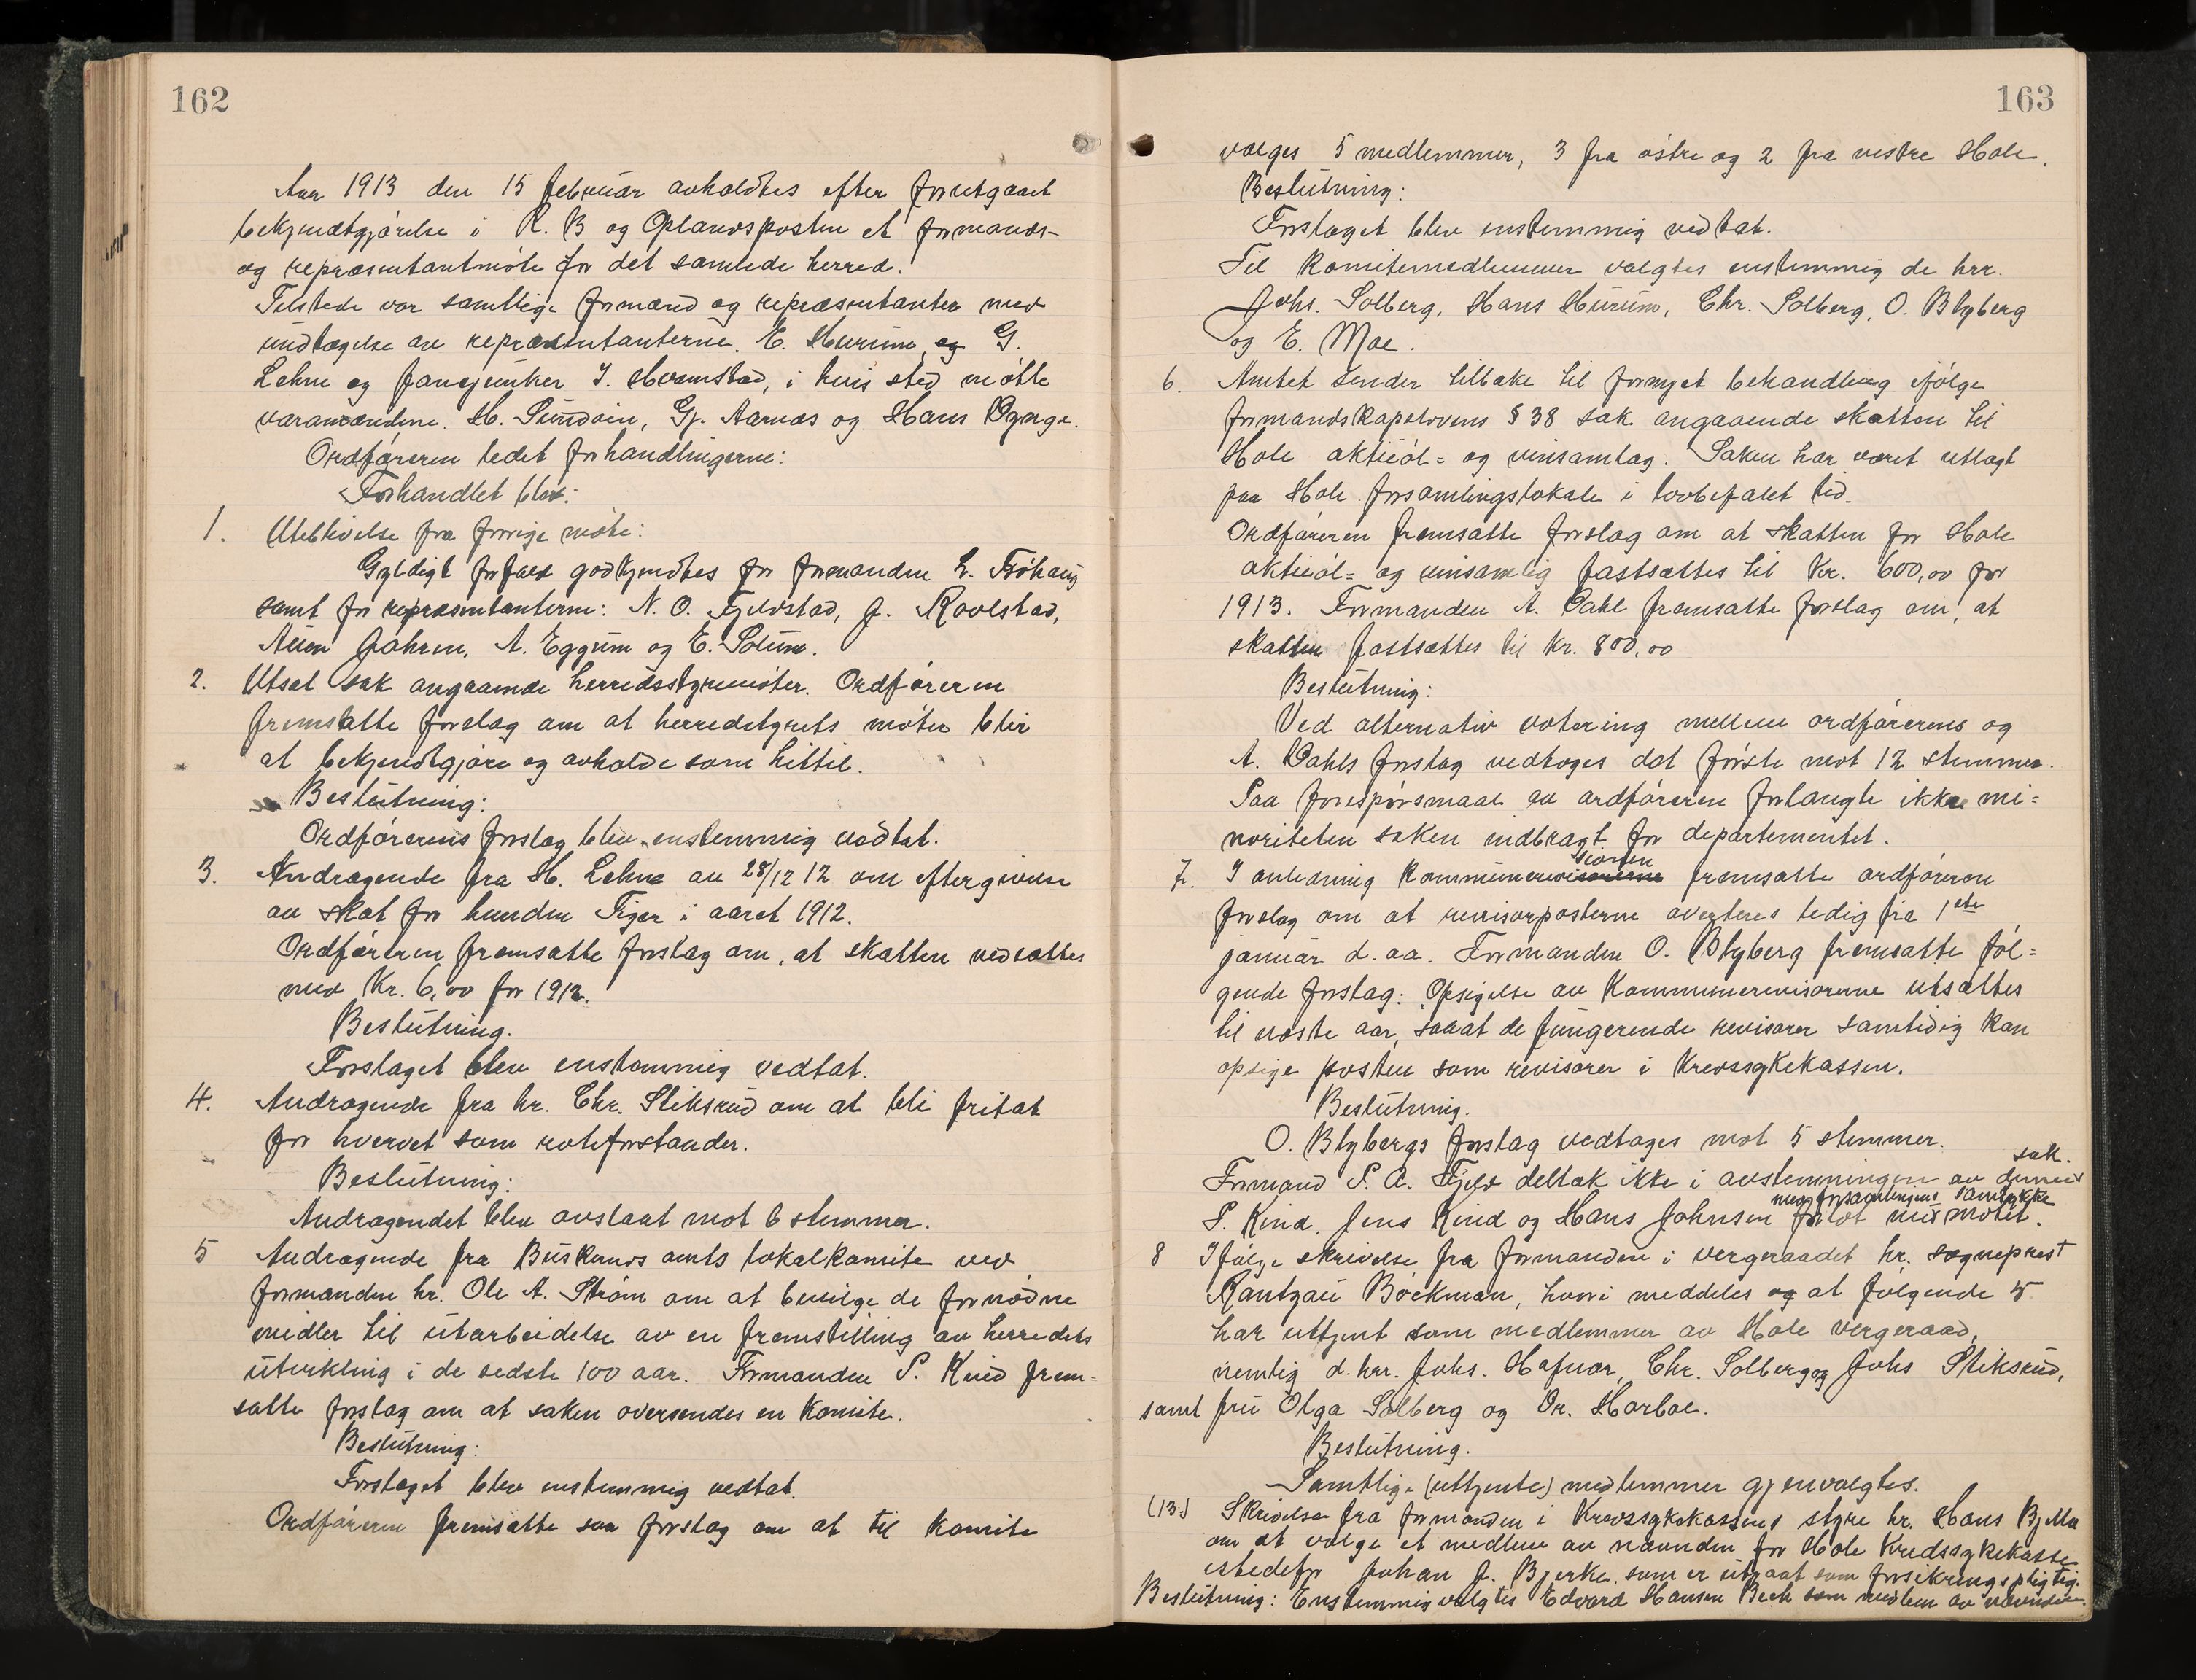 162
Aar 1913 den 15 februar avholdtes efter forutgaaet
bekjendtgjørelse i R. B og Oplandsposten et formands-
og repræsentantmøte for det samlede herred.
Tilstede var samtlige formænd og repræsentanter med
undtagelse av repræsentanterne. E. Hurum og G.
Lehne og fanejunker I. Hvamstad, i hvis sted møtte
varamændene. H. Sundøen, Gj. Aarnæs og Hans Bynge.
Ordføreren ledet forhandlingerne:
Forhandlet blev:
1. Uteblivelse fra forrige møte:
Gyldigt forfald godkjendtes for formanden L. Frøhaug
samt for repræsentanterne: N. O. Fjeldstad, J. Rolstad,
Gahren, A. Eggum og E. Solum.
2. Utsat sak angaaende herredsstyremøter. Ordføreren
fremsatte forslag om at herredstyrets møter blir
at bekjendtgjøre og avholde som hittil.
Beslutning:
Ordførerens forslag blev enstemmig vedtat.
3. Andragende fra H. Lehne av 28/12 12 om eftergivelse
av skat for hunden Tiger i aaret 1912.
Ordføreren fremsatte forslag om, at skatten nedsættes
med Kr. 6,00 for 1912.
Beslutning.
Forslaget blev enstemmig vedtat.
4. Andragende fra hr. Chr. Sliksrud om at bli fritat
for hvervet som roteforstander.
Beslutning:
Andragendet blev avslaat mot 6 stemmer.
5 Andragende fra Buskeruds amts lokalkomite ved
formanden hr. Ole A. Strøm om at bevilge de fornødne
midler til utarbeidelse av en fremstilling av herredets
utvikling i de sidste 100 aar. Formanden P. Kind frem-
satte forslag om at saken oversendes en komite.
Beslutning:
Forslaget blev enstemmig vedtat.
Ordføreren fremsatte saa forslag om at til komite
163
vælges 5 medlemmer, 3 fra østre og 2 fra vestre Hole.
Beslutning:
Forslaget blev enstemmig vedtat.
Til komitemedlemmer valgtes enstemmig de hrr.
Johs. Solberg, Hans Hurum, Chr. Solberg, O. Blyberg
og E. Moe.
6. Amtet sender tilbake til fornyet behandling ifølge
formandskapslovens § 38 sak angaaende skatten til
Hole aktieøl= og vinsamlag. Saken har været utlagt
paa Hole forsamlingslokale i lovbefalet tid.
Ordføreren fremsatte forslag om at skatten for Hole
aktieøl= og vinsamlag fastsættes til Kr. 600,00 for
1913. Formanden A. Dahl fremsatte forslag om, at
skatten fastsættes til Kr. 800,00
Beslutning:
Ved alternativ votering mellem ordførerens og
A. Dahls forslag vedtoges det første mot 12 stemmer.
Paa forespørsmaal av ordføreren forlangte ikke mi=
noriteten saken indbragt for departementet.
sionen
7. I anledning kommunerevisorerne fremsatte ordføreren
forslag om at revisorposterne averteres ledig fra 1ste
januar d. aa. Formanden O. Blyberg fremsatte føl=
gende forslag: Opsigelse av Kommunerevisorerne utsættes
til næste aar, saaat de fungerende revisorer samtidig kan
opsige posten som revisorer i Kredssykekassen.
Beslutning.
O. Blybergs forslag vedtages mot 5 stemmer.
sak.
Formand P. A. Fjeld deltok ikke i avstemningen av denne
med forsamlingens samtykke
P. Kind, Jens Kind og Hans Johnsen forlot nu møtet.
8 Ifølge skrivelse fra formanden i vergeraadet hr. sogneprest
Rantzau Bøckman, hvori meddeles og at følgende 5
har uttjent som medlemmer av Hole vergeraad,
nemlig d. hrr. Johs. Hafnor, Chr. Solberg og Johs Sliksrud,
samt fru Olga Solberg og Dr. Harboe.
Beslutning.
Samtlige (uttjente) medlemmer gjenvalgtes.
(13.) Skrivelse fra formanden i Kredssykekassens styre hr. Hans Bjella
om at vælge et medlem av nævnden for Hole Kredssykekasse
istedefor Johan J. Bjerke som er utgaat som forsikringspligtig.
Beslutning: Enstemmig valgtes Edvard Hansen Bech som medlem av nævnden.